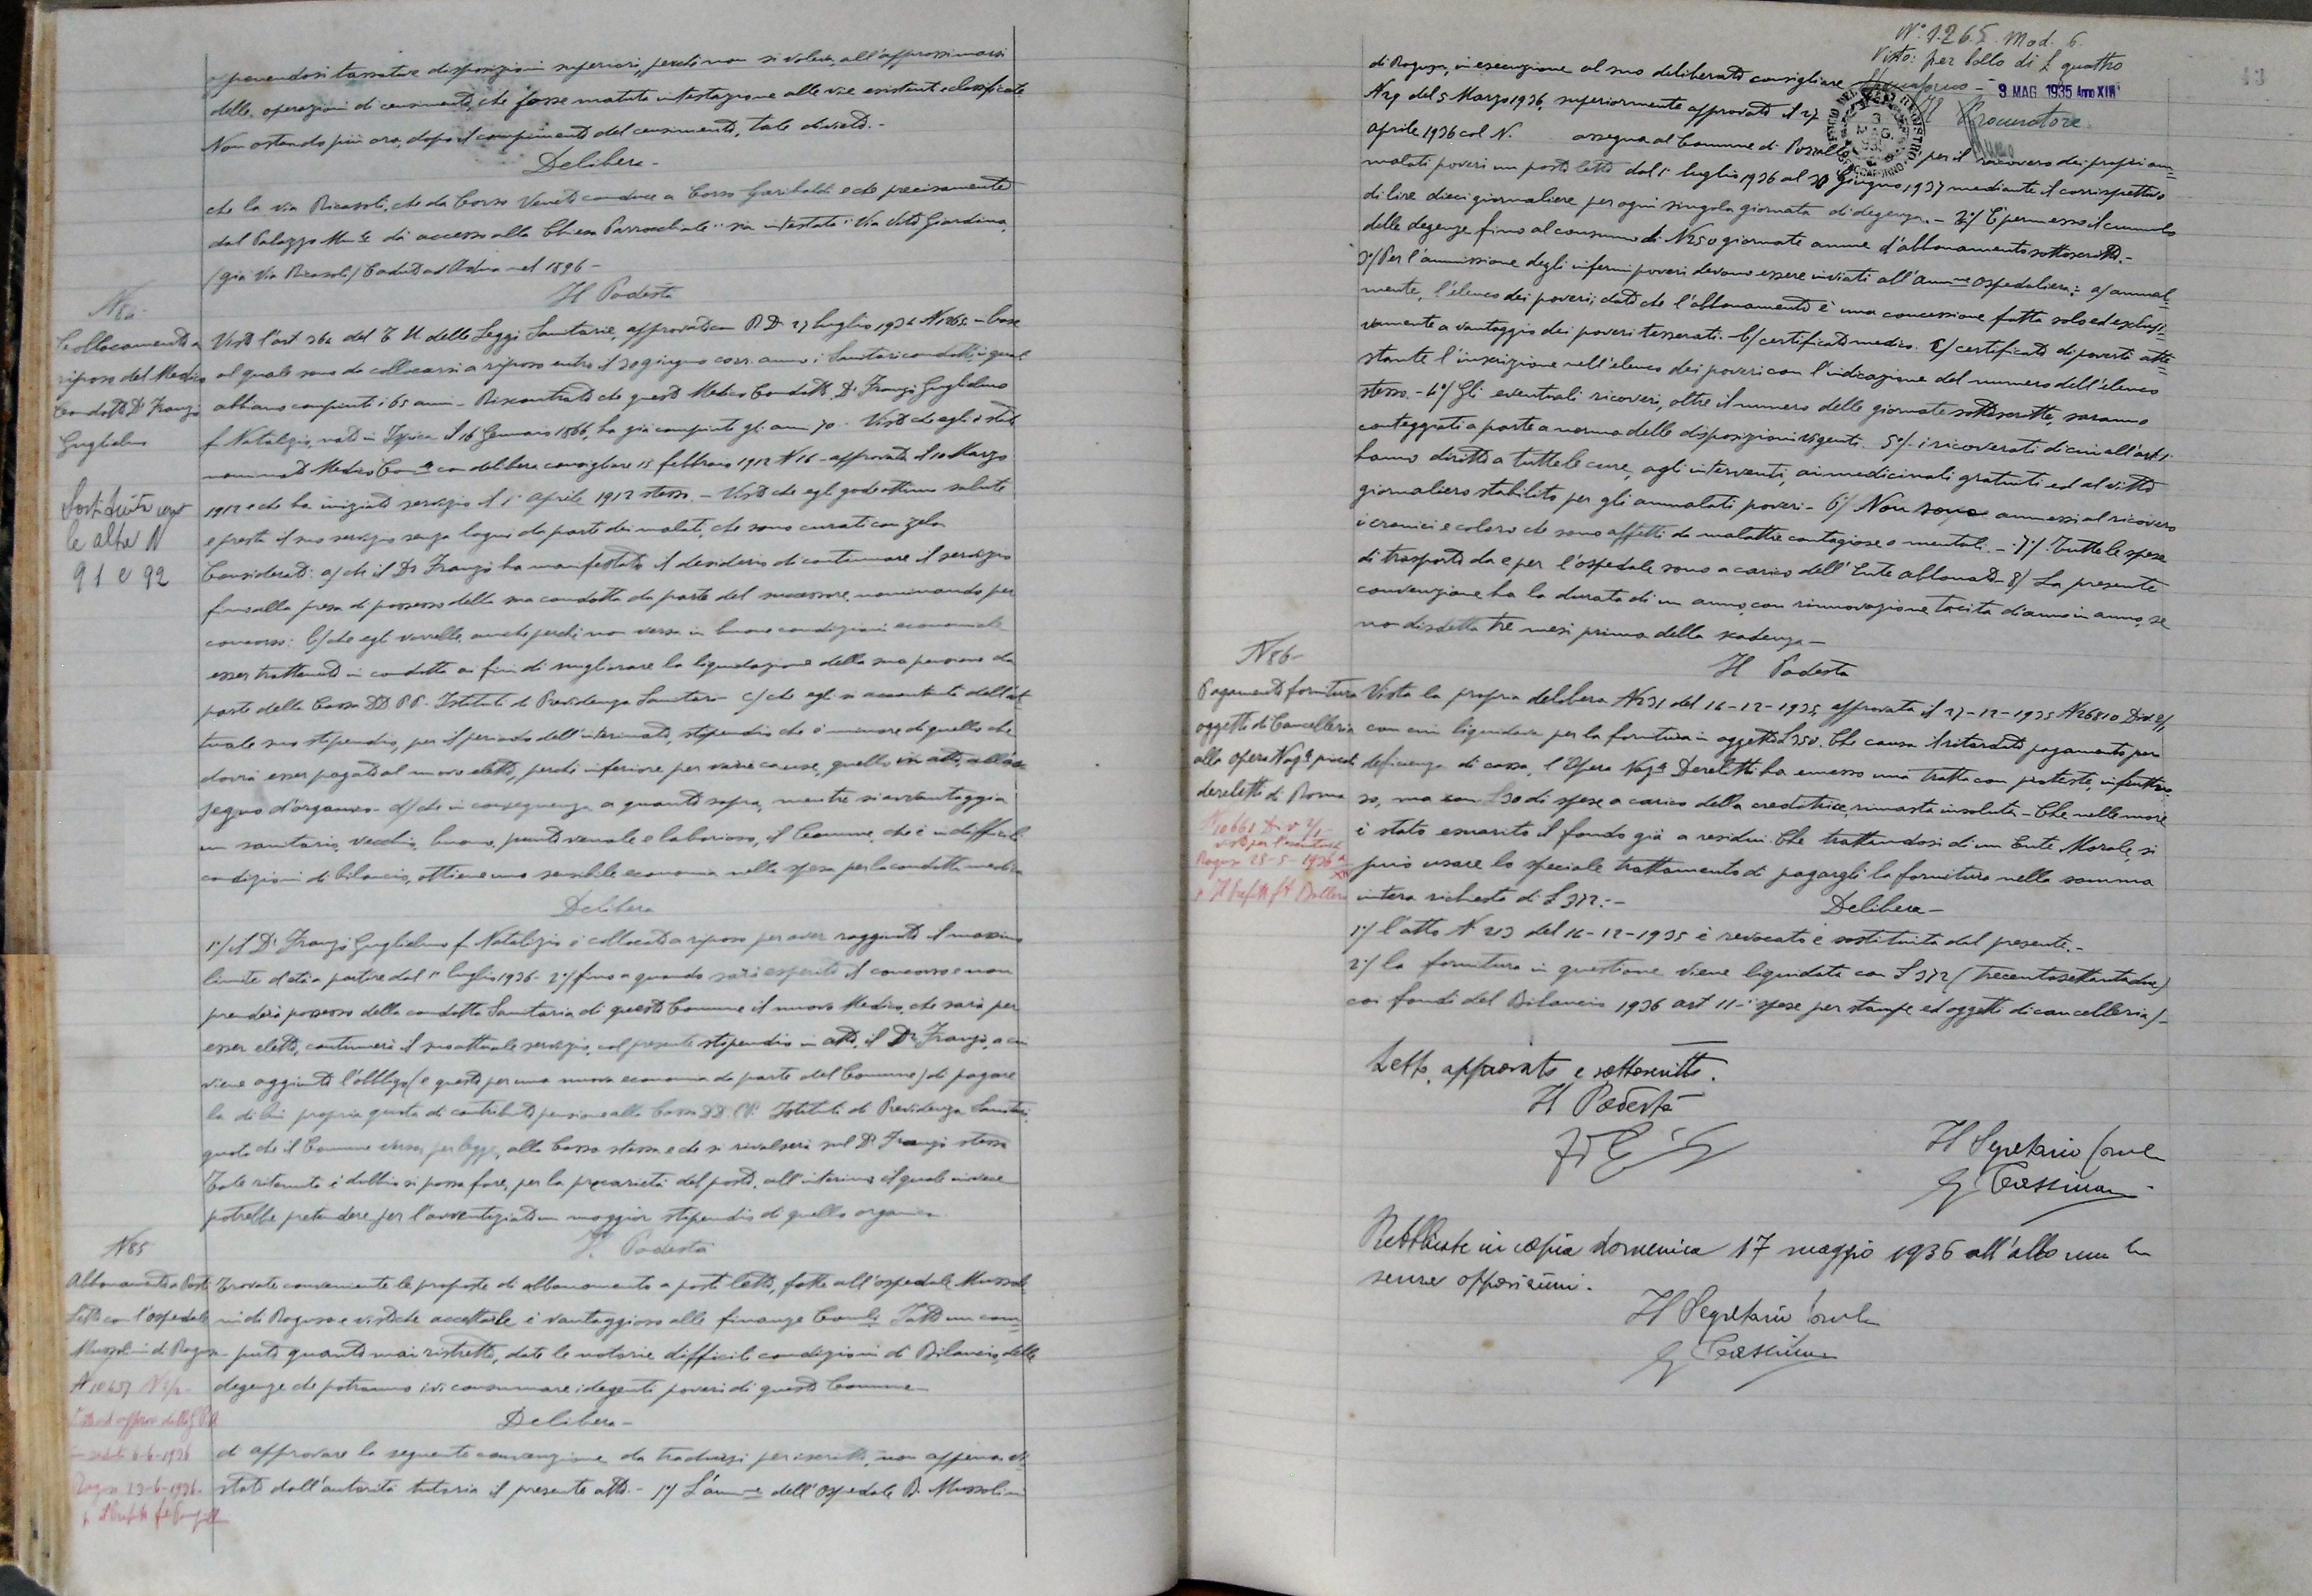 opponendosi tassative disposizioni superiori, perché non si voleva, all'approssimarsi
delle operazioni di censimento, che fosse mutata intestazione alle vie esistenti e classificate
Non ostando più ora, dopo il compimento del censimento, tale divieto.-
Delibera-
che la via Ricasoli, che da Corso Veneto conduce a Corso Garibaldi e che precisamente
dal Palazzo Mle dà accesso alla Chiesa Parrocchiale "sia intestata": Via Vito Giardina,
(già Via Ricasoli) Caduto ad Adua nel 1896-
Il Podestà
N 84-
Collocamento a
riposo del Medico
Condotto Dr Franzò
Guglielmo
Sostituita con
le altre N
91 e 92
Visto l'art 362 del T U delle Leggi Sanitarie, approvato con R D 27 luglio 1934 N 1265 - base
al quale sono da collocarsi a riposo entro il 30 giugno corr. anno i Sanitari condotti, i quali
abbiano compiuti i 65 anni - Riscontrato che questo Medico Condotto, Dr Franzò Guglielmo
f. Natalizio, nato in Ispica il 16 Gennaio 1866, ha già compiuto gli anni 70 - Visto che egli è stato
nominato Medico Comle con delibera consigliare 15 febbraio 1912 N 16 - approvata il 10 Marzo
1912 e che ha iniziato servizio il 1° Aprile 1912 stesso. - Visto che egli gode ottima salute
e presta il suo servizio senza lagni da parte dei malati, che sono curati con zelo
Considerato: a/ che il Dr Franzò ha manifestato il desiderio di continuare il servizio
fino alla presa di possesso della sua condotta da parte del successore, nominando per
concorso: b/ che egli vorrebbe, anche perché non versa in buone condizioni economiche
esser trattenuto in condotta ai fini di migliorare la liquidazione della sua pensione da
parte della Cassa DD. PP. Istituti di Previdenza Sanitari - c/ che egli si accontenta dell'at-
tuale suo stipendio, per il periodo dell'interinato, stipendio che è minore di quello che
dovrà esser pagato al nuovo eletto, perché inferiore per varie cause, quello in atto, all'as-
segno d'organico - d/ che in conseguenza a quanto sopra, mentre si avvantaggia
un sanitario, vecchio, buono, venale e laborioso, il Comune, che è in difficili
condizioni di bilancio, ottiene una sensibile economia nella spesa per la condotta medica
Delibera
1°/ il Dr Franzò Guglielmo f. Natalizio è collocato a riposo per aver raggiunto il massimo
limite d'età a partire dal 1° luglio 1936 - 2°/ fino a quando sarà esperito il concorso e non
prenderà possesso della condotta Sanitaria di questo Comune il nuovo Medico, che sarà per
esser eletto, continuerà il suo attuale servizio, col presente stipendio in atto, il Dr Franzò, a cui
viene aggiunto l'obbligo (e questo per una nuova economia da parte del Comune) di pagare
la di lui propria quota di contributo pensione alla Cassa DD. PP. Istituti di Previdenza Sanitari,
quota che il Comune versa, per legge, alla Cassa stessa e che si rivalserà sul Dr Franzò stesso
Tale ritenuta è dubbio si possa fare, per la precarietà del posto, all'interino, il quale invece
potrebbe pretendere per l'avventiziato un maggior stipendio di quello organico.
Il Podestà
N 85
Abbonamento a Posti
Letto con l'ospedale
Mussolini di Ragusa
N 10657
6-6-1936
Ragusa 23-6-1936-
Trovate conveniente le proposte di abbonamento a posti letto, fatte all'ospedale Mussoli-
ni di Ragusa e visto che accettarle è vantaggioso alle finanze Comli Fatto un com-
puto quanto mai ristretto, date le notorie difficili condizioni di Bilancio, delle
degenze che potranno ivi consumare i degenti poveri di questo Comune
Delibera-
di approvare la seguente convenzione da tradursi per iscritto, non appena vi-
stato dall'autorità tutoria il presente atto.- 1°/ L'amm.ne dell'Ospedale B. Mussolini
N° 1.265. Mod. 6.
Visto: per bollo di £ quattro
3 MAG. 1935 Anno XIII°
Il Procuratore
43
di Ragusa, in esecuzione al suo deliberato consigliare
N 29 del 5 Marzo 1936, superiormente approvato il 27
Aprile 1936 col N. assegna al Comune di Pozzallo per il ricovero dei propri am=
malati poveri un posto letto dal 1° luglio 1936 al 30 giugno 1937 mediante il corrispettivo
di lire dieci giornaliere per ogni singola giornata di degenza.- 2°/ È permesso il cumulo
delle degenze fino al consumo di N 250 giornate annue d'abbonamento sottoscritto.-
3°/ Per l'ammissione degli infermi poveri devono essere inviati all'amm.ne ospedaliera: a/ annual-
mente, l'elenco dei poveri; dato che l'abbonamento è una concessione fatta solo ed esclusi=
vamente a vantaggio dei poveri tesserati. b/ certificato medico. c/ certificato di povertà atte=
stante l'inscrizione nell'elenco dei poveri con l'indicazione del numero dell'elenco
stesso.- 4°/ Gli eventuali ricoveri, oltre il numero delle giornate sottoscritte, saranno
conteggiati a parte a norma delle disposizioni vigenti. 5°/ - i ricoverati di cui all'art 1
hanno diritto a tutte le cure, agli interventi, ai medicinali gratuiti ed al vitto
giornaliero stabilito per gli ammalati poveri - 6°/ Non sono ammessi al ricovero
i cronici e coloro che sono affetti da malattie contagiose o mentali. - 7°/ Tutte le spese
di trasporto da e per l'ospedale sono a carico dell'Ente abbonato - 8°/ La presente
convenzione ha la durata di un anno, con rinnovazione tacita di anno in anno, se
non disdetta tre mesi prima della scadenza-
Il Podestà
N 86-
Pagamento fornitura
oggetti di Cancelleria
alla opera Naz.le piccoli
derelitti di Roma
N 10661
Ragusa 25-5-1936
Vista la propria delibera N 231 del 16-12-1935, approvata il 27-12-1935 N 26810 Div 2/1
con cui liquidava per la fornitura in oggetto L 350. Che causa il ritardato pagamento per
deficienza di cassa, l'Opera Naz.le Derelitti ha emesso una tratta con proteste, infruttuo-
so, ma con L 30 di spese a carico della creditrice, rimasta insoluta - Che nelle more
è stato esaurito il fondo già a residui. Che trattandosi di un Ente Morale, si
può usare lo speciale trattamento di pagargli la fornitura nella somma
intera richiesta di L 372.-
Delibera-
1°/ l'atto N 213 del 16-12-1935 è revocato e sostituita dal presente.-
2°/ la fornitura in questione viene liquidata con L 372 (trecentosettantadue)
coi fondi del Bilancio 1936 art 11 - (spese per stampe ed oggetti di cancelleria)-
Letto, approvato e sottoscritto.
Il Podestà
Il Segretario Comle
G Cassisuo
Pubblicata in copia domenica 17 maggio 1936 all'albo
senza opposizioni.
Il Segretario Comle